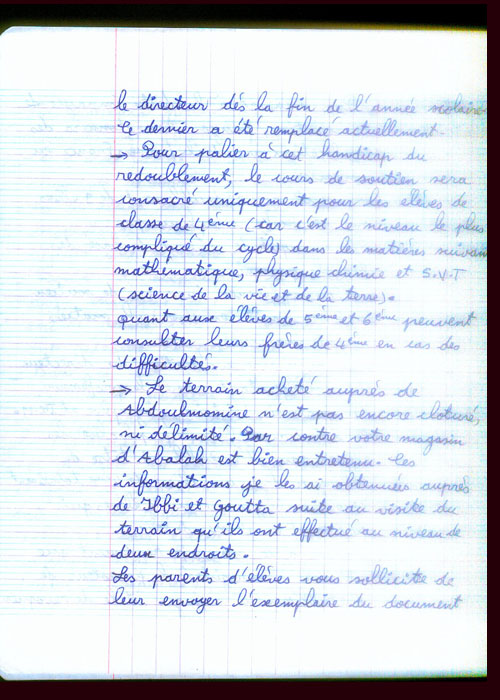 le directeur dés la fin de l'année scolaire
Ce dernier a été remplacé actuellement.
→ Pour palier à cet handicap du
redoublement, le cours de soutien sera
consacré uniquement pour les elèves de
classe de 4ème (car c'est le niveau le plus
compliqué du cycle) dans les matières suivan
mathématique, physique chimie et S.V.T
(science de la vie et de la terre).
quant aux élèves de 5ème et 6ème peuvent
consulter leurs frères de 4ème en cas des
difficultés.
→ Le terrain acheté auprès de
Abdoulmomine n'est pas encore cloturé,
ni délimité. Par contre votre magasin
d'Abalah est bien entretenu. Ces
informations je les ai obtenues auprès
de Ibbi et Goutta suite au visite du
terrain qu'ils ont effectué au niveau de
deux endroits.
Les parents d'élèves vous sollicite de
leur envoyer l'exemplaire du document